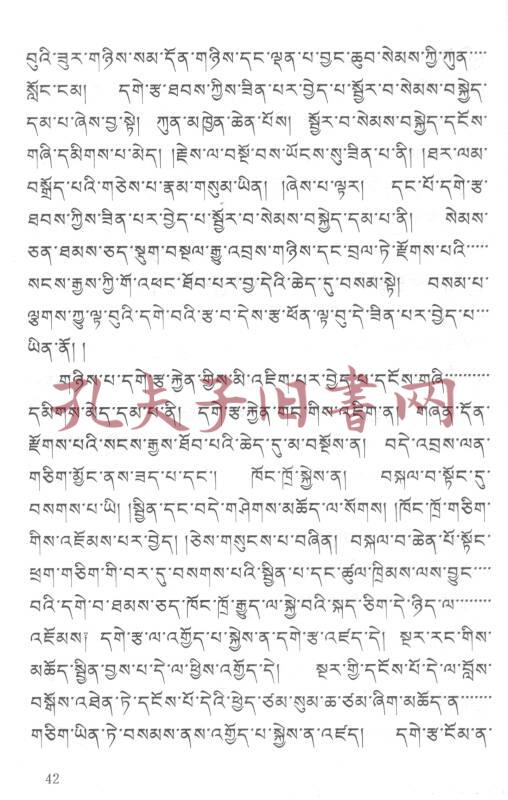 བུའི་ཟུར་གཉིས་སམ་དོན་གཉིས་དང་ལྡན་པ་བྱང་ཆུབ་སེམས་ཀྱི་ཀུན་····
སློང་ངམ། དགེ་རྩ་ཐབས་ཀྱིས་ཟིན་པར་བྱེད་པ་སྦྱོར་བ་སེམས་བསྐྱེད་
དམ་པ་ཞེས་བྱ་སྟེ། ཀུན་མཁྱེན་ཆེན་པོས། སྦྱོར་བ་སེམས་བསྐྱེད་དངོས་
གཞི་དམིགས་པ་མེད། །རྗེས་ལ་བསྔོ་བས་ཡོངས་སུ་ཟིན་པ་ནི། །ཐར་ལམ་
བསྒྲོད་པའི་གཅེས་པ་རྣམ་གསུམ་ཡིན། །ཞེས་པ་ལྟར། དང་པོ་དགེ་རྩ་
ཐབས་ཀྱིས་ཟིན་པར་བྱེད་པ་སྦྱོར་བ་སེམས་བསྐྱེད་དམ་པ་ནི། སེམས་
ཅན་ཐམས་ཅད་སྡུག་བསྔལ་རྒྱུ་འབྲས་གཉིས་དང་བྲལ་ཏེ་རྫོགས་པའི་····
སངས་རྒྱས་ཀྱི་གོ་འཕང་ཐོབ་པར་བྱ་དེའི་ཆེད་དུ་བསམ་སྟེ། བསམ་པ་
ལྕགས་ཀྱུ་ལྟ་བུའི་དགེ་བའི་རྩ་བ་དེས་རྩ་ཕོན་ལྟ་བུ་དེ་ཟིན་པར་བྱེད་པ་···
ཡིན་ནོ། །
གཉིས་པ་དགེ་རྩ་རྐྱེན་གྱིས་མི་འཇིག་པར་བྱེད་པ་དངོས་གཞི་·······
དམིགས་མེད་དམ་པ་ནི། དགེ་རྩ་རྐྱེན་གང་གིས་འཇིག་ན། གཞན་དོན་
རྫོགས་པའི་སངས་རྒྱས་ཐོབ་པའི་ཆེད་དུ་མ་བསྔོས་ན། བདེ་འབྲས་ལན་
གཅིག་མྱོང་ནས་ཟད་པ་དང་། ཁོང་ཁྲོ་སྐྱེས་ན། བསྐལ་བ་སྟོང་དུ་
བསགས་པ་ཡི། །སྦྱིན་དང་བདེ་གཤེགས་མཆོད་ལ་སོགས། །ཁོང་ཁྲོ་གཅིག་
གིས་འཇོམས་པར་བྱེད། །ཅེས་གསུངས་པ་བཞིན། བསྐལ་བ་ཆེན་པོ་སྟོང་
ཕྲག་གཅིག་གི་བར་དུ་བསགས་པའི་སྦྱིན་པ་དང་ཚུལ་ཁྲིམས་ལས་བྱུང་·····
བའི་དགེ་བ་ཐམས་ཅད་ཁོང་ཁྲོ་རྒྱུད་ལ་སྐྱེ་བའི་སྐད་ཅིག་དེ་ཉིད་ལ་·······
འཇོམས། དགེ་རྩ་ལ་འགྱོད་པ་སྐྱེས་ན་དགེ་རྩ་འཛད་དེ། སྔར་རང་གིས་
མཆོད་སྦྱིན་བྱས་པ་དེ་ལ་ཕྱིས་འགྱོད་དེ། སྔར་གྱི་དངོས་པོ་དེ་ལ་བློས་
བསྒོས་འཐེན་ཏེ་དངོས་པོ་དེའི་ཕྱེད་ཙམ་སུམ་ཆ་ཙམ་ཞིག་མཆོད་ན་········
གཅིག་ཡིན་ཏེ་བསམས་ནས་འགྱོད་པ་སྐྱེས་ན་འཛད། དགེ་རྩ་ངོམ་ན་
42
孔夫子旧书网